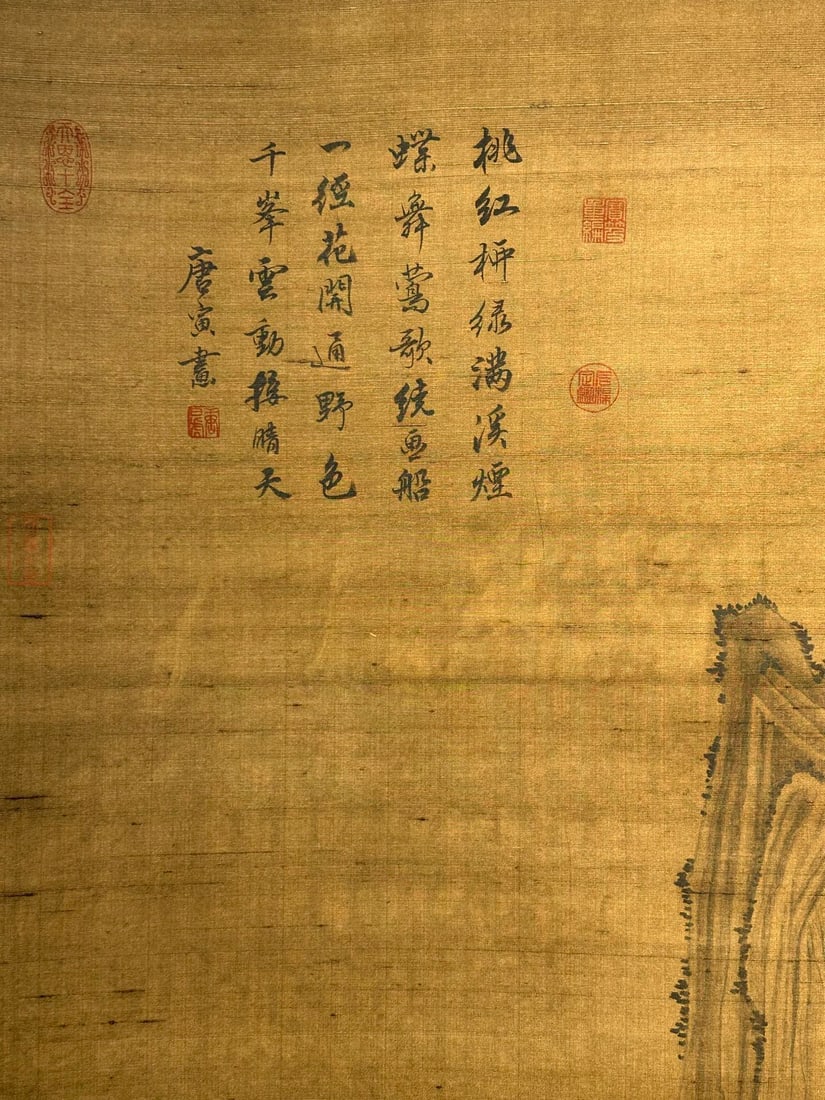 桃紅柳綠滿溪煙
蝶舞鶯歌繞画船
一徑花開通野色
千峯雲動接晴天
唐寅畫